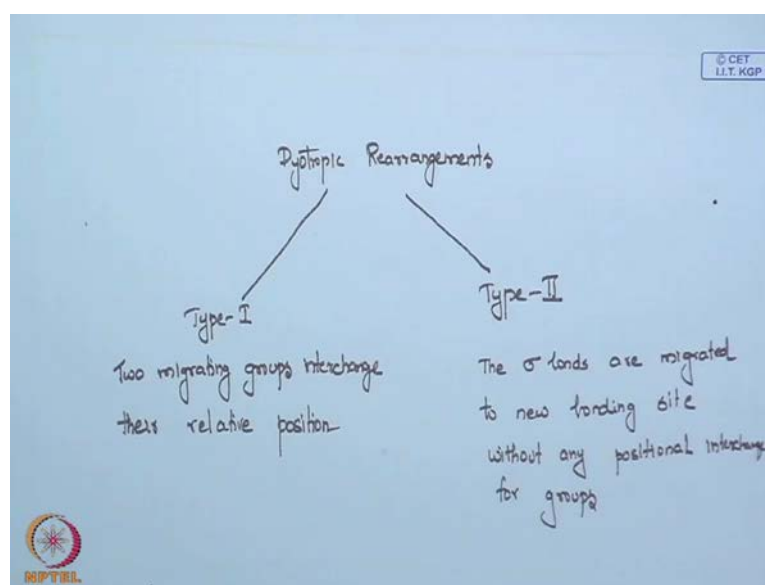 © CET
I.I.T. KGP
Dyotropic Rearrangements
Type-I
Two migrating groups interchange
their relative position
Type-II
The σ bonds are migrated
to new bonding site
without any positional interchange
for groups
NPTEL